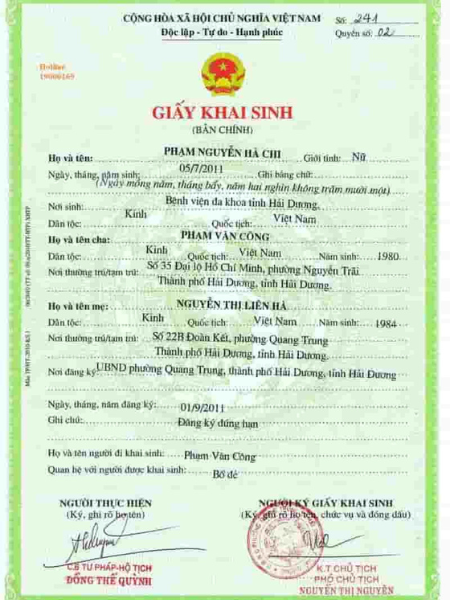 CỘNG HÒA XÃ HỘI CHỦ NGHĨA VIỆT NAM
Độc lập - Tự do - Hạnh phúc
Số: 241
Quyển số: 02
Hotline
19006169
GIẤY KHAI SINH
(BẢN CHÍNH)
Họ và tên: PHẠM NGUYỄN HÀ CHI Giới tính: Nữ
Ngày, tháng, năm sinh: 05/7/2011 Ghi bằng chữ:
(Ngày mồng năm, tháng bẩy, năm hai nghìn không trăm mười một)
Nơi sinh: Bệnh viện đa khoa tỉnh Hải Dương.
Dân tộc: Kinh Quốc tịch: Việt Nam
Họ và tên cha: PHẠM VĂN CÔNG
Dân tộc: Kinh Quốc tịch: Việt Nam Năm sinh: 1980
Nơi thường trú/tạm trú: Số 35 Đại lộ Hồ Chí Minh, phường Nguyễn Trãi
Thành phố Hải Dương, tỉnh Hải Dương.
Họ và tên mẹ: NGUYỄN THỊ LIÊN HÀ
Dân tộc: Kinh Quốc tịch: Việt Nam Năm sinh: 1984
Nơi thường trú/tạm trú: Số 22B Đoàn Kết, phường Quang Trung
Thành phố Hải Dương, tỉnh Hải Dương.
Nơi đăng ký: UBND phường Quang Trung, thành phố Hải Dương, tỉnh Hải Dương
Ngày, tháng, năm đăng ký: 01/9/2011
Ghi chú: Đăng ký đúng hạn
Họ và tên người đi khai sinh: Phạm Văn Công
Quan hệ với người được khai sinh: Bố đẻ
NGƯỜI THỰC HIỆN
(Ký, ghi rõ họ tên)
C.B TƯ PHÁP-HỘ TỊCH
ĐỒNG THẾ QUỲNH
NGƯỜI KÝ GIẤY KHAI SINH
(Ký, ghi rõ họ tên, chức vụ và đóng dấu)
K.T CHỦ TỊCH
PHÓ CHỦ TỊCH
NGUYỄN THỊ NGUYÊN